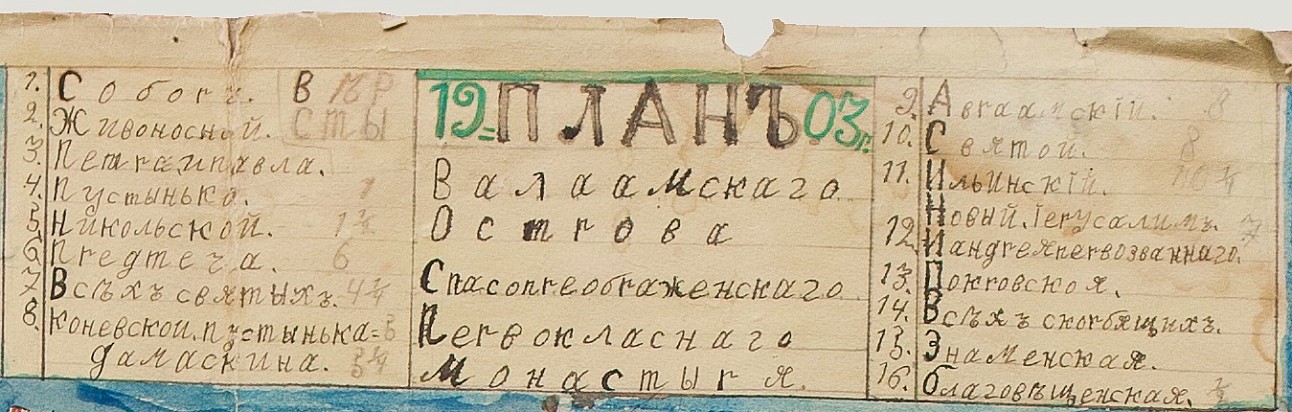 1. Соборъ. ВЪ ВѢР
2. Живоносной. СТЫ
3. Петраипавла.
4. Пустынька. 1
5. Никольской. 1 ¼
6. Предтеча. 6
7. Всѣхъ святыхъ. 4 ¼
8. коневской. пустынька = 3
дамаскина. 3 ¾
19= ПЛАНЪ 03г.
Валаамскаго
Острова
Спасопреображенскаго
Первокласнаго
Монастыря.
9. Авраамскій. 8
10. Святой. 8
11. Ильинскій. 10 ¼
Новый. Іерусалимъ. 7
12. Иандреяпервозваннаго.
13. Покровская.
14. Всѣхъ скорбящихъ.
15. Знаменская.
16. благовѣщенская. ½